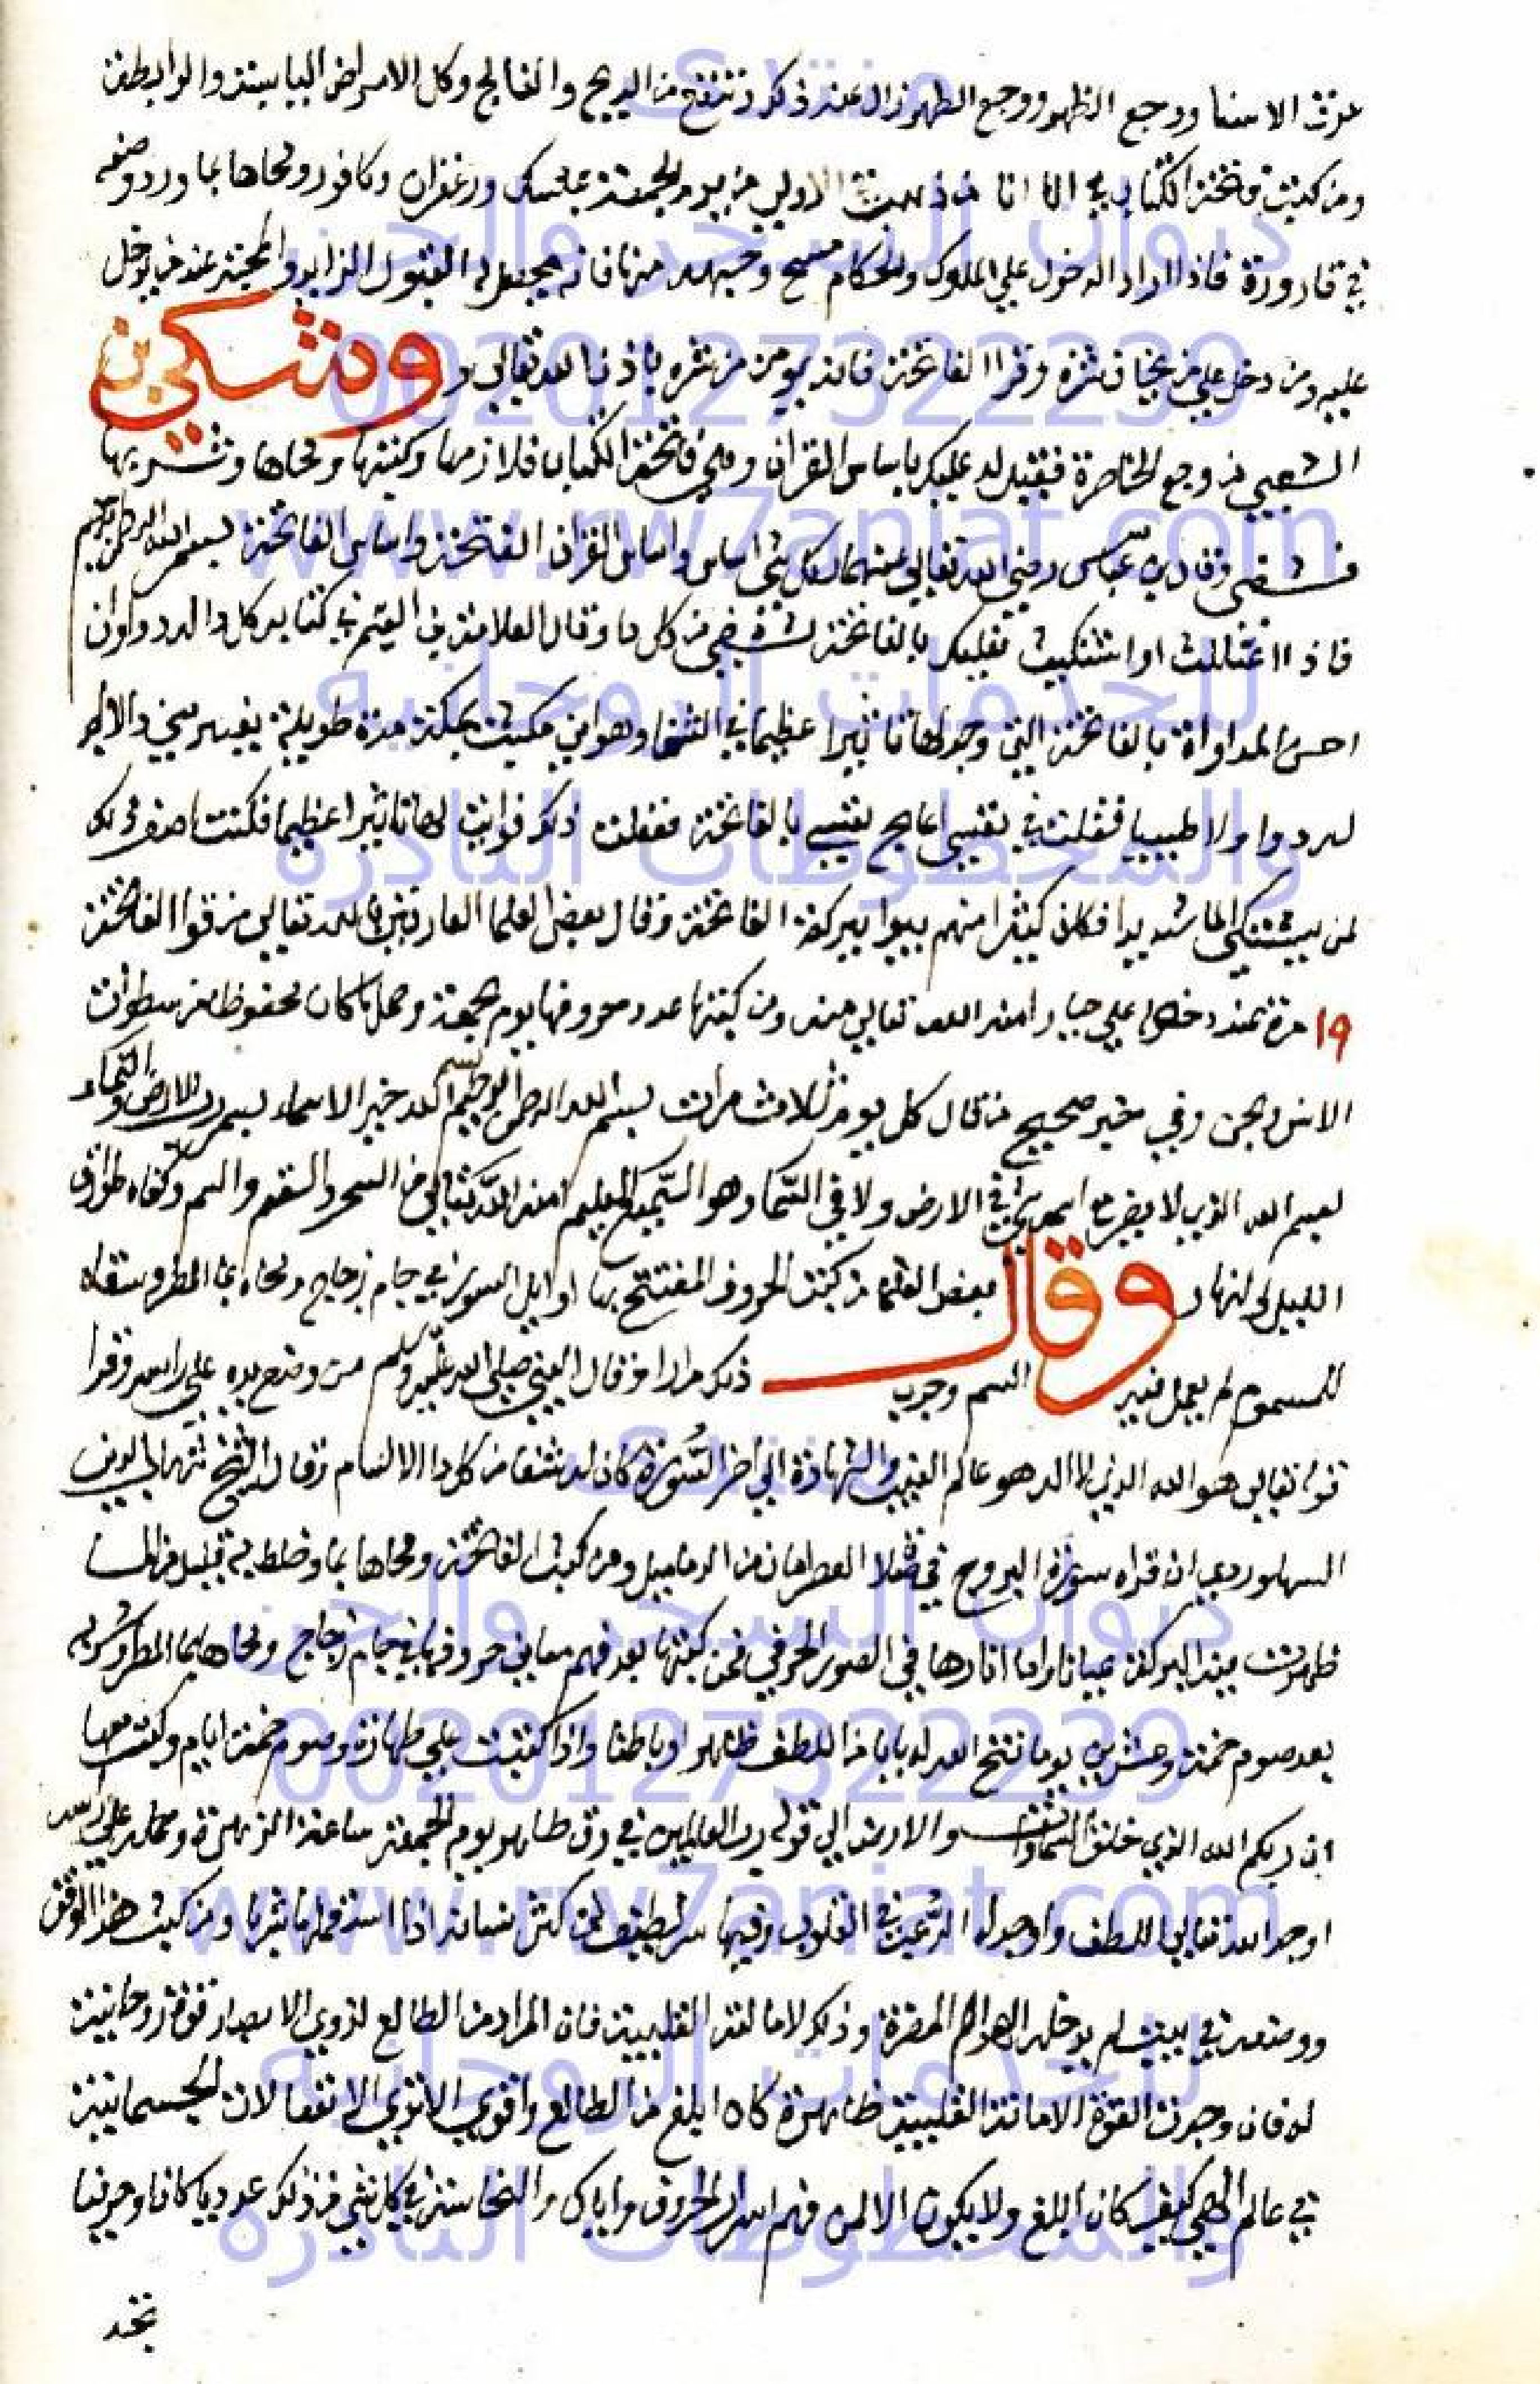 عرق الاسنا ووجع الظهور ووجع الظهر زال عند ذكر وتنفع من الريح والفالج وكل الامراض اليابسة والرابطة
ومن كتب فاتحة الكتاب في انا الاولي من يوم الجمعة بمسك وزعفران وكافور ومحاها بماورد وضعه
في قارورة فاذا اراد الدخول علي الملوك والحكام مسح وجهه منها فانه يحصل له القبول الزايد والمحبة عند من يدخل
عليه ومن دخل علي من يخاف شره وقرا الفاتحة فانه يومن من شره باذن الله تعالي و وشكي بن
الشعبي من وجع الخاصرة فقيل له عليك باساس القران وهي فاتحة الكتاب فلازمها وكتبها ومحاها وشربها
فشفي وقال بن عباس رضي الله تعالي عنهما لكل شي اساس واساس القران الفاتحة واساس الفاتحة بسم الله الرحمن الرحيم
فاذا اعتللت او اشتكيت فعليك بالفاتحة تشفي من كل دا وقال العلامة بن القيم في كتابه كل دا له دوا وان
احسن المداواة بالفاتحة التي وجد لها تاثيرا عظيما في الشفا وهو اني مكثت بمكة مدة طويلة
له دوا ولا طبيبا فقلت في نفسي اعالج نفسي بالفاتحة ففعلت ذلك فرايت لها تاثيرا عظيما فكنت اصف ذلك
لمن يشتكي الما شديدا فكان كثيرا منهم يبروا ببركة الفاتحة وقال بعض العلما العارفين بالله تعالي من قرا الفاتحة
١٩ مرة عند دخوله علي جبار امنه الله تعالي منه ومن كتبها عدد حروفها يوم الجمعة وحملها كان محفوظا من سطوات
الانس والجن وفي خبر صحيح من قال كل يوم ثلاث مرات بسم الله الرحمن الرحيم بسم الله خير الاسماء بسم رب الارض والسماء
بسم الله الذي لا يضر مع اسمه شي في الارض ولا في السما وهو السميع العليم امنه الله تعالي من السحر والسقم والسم وكفاه طوارق
الليل والنهار وقال بعض العلما من كتب الحروف المفتتح بها اوايل السور في جام زجاج ومحاه بما المطر وسقاه
للمسموم لم يعمل فيه السم وجرب ذلك مرارا وقال النبي صلي الله عليه وسلم من وضع يده علي راسه وقرا
قوله تعالي هو الله الذي لا اله الا هو عالم الغيب والشهادة الي اخر السورة كان له شفا من كل دا الا السام وقال الشيخ شهاب الدين
السهلوردي ان قراه سورة البروج في صلاة العصر امان من الدماميل ومن كتب الفاتحة ومحاها بما وخلط به قليل من الما
ظهرت فيه البركة عيانا واما اثارها في الصور الحرفي فمن كتبها بعد فهم معاني حروفها في جام زجاج ومحاها بما المطر وشربه
بعد صوم خمسة وعشرين يوما فتح الله له بابا من اللطف ظاهر او باطنا واذا كتبت علي طهارة وصوم خمسة ايام وكتب معها
ان ربكم الله الذي خلق السماوات والارض الي قوله رب العالمين في رق طاهر يوم الجمعة ساعة الزهرة وحمله علي راسه
اوجد الله تعالي اللطف واوجد له الرعب في القلوب وفيها سر لطيف لمن كثر نسيانه اذا استعملها شربا ومن كتب هذا الوفق
ووضعه في بيت لم يدخله الهوام المضرة وذلك القلبية فان المراد من الطالع لذوي الابصار قوة روحانية
له فان وجدت القوة القلبية ظاهرة كان ابلغ من الطالع واقوي الانفعالات الجسمانية
في عالم كان ابلغ ولا يكون الا لمن فهم اسرار الحروف واياك من النجاسة في كل شي من ذلك عدديا كان او حرفيا
منتدى
ديوان السحر والجن
00201273222239
www.rw7aniat.com
للخدمات الروحانيه
والمخطوطات النادرة
منتدى
ديوان السحر والجن
00201273222239
www.rw7aniat.com
للخدمات الروحانيه
والمخطوطات النادرة